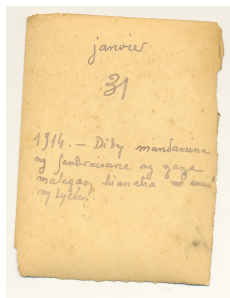 janvier
31
1914. – Didy mandavina
ny fandraisana ny gazy
malagasy hianatra
ny Lycée